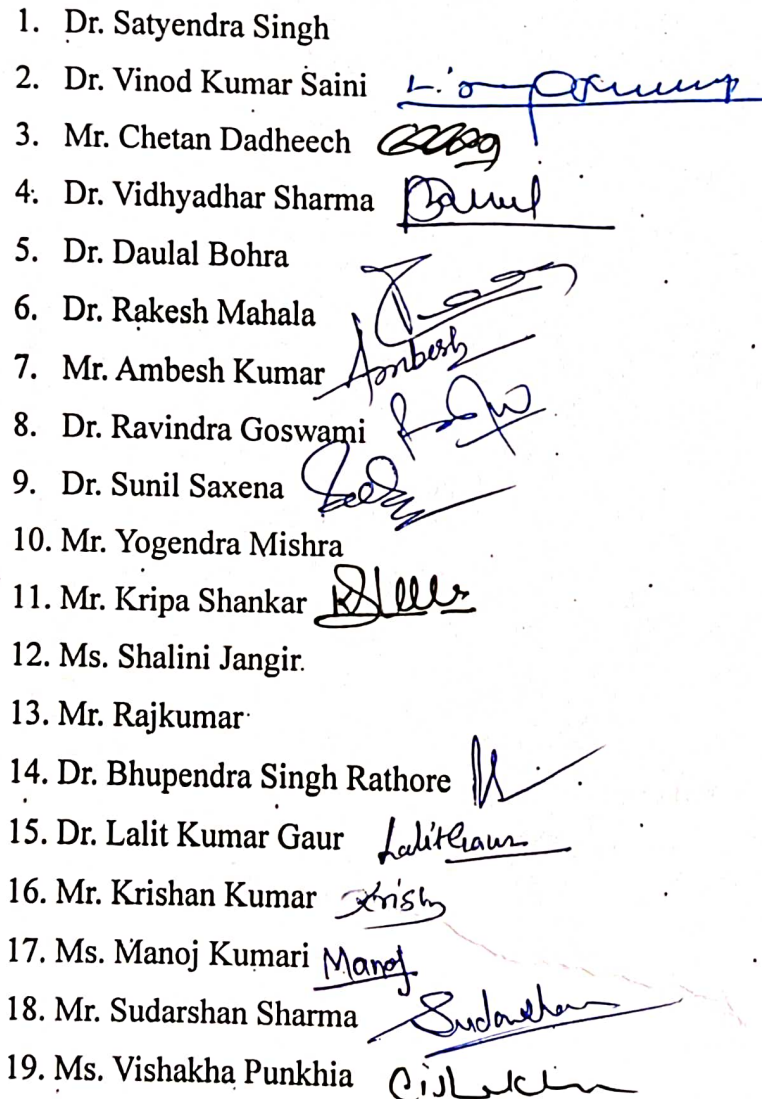 1. Dr. Satyendra Singh
2. Dr. Vinod Kumar Saini
3. Mr. Chetan Dadheech
4. Dr. Vidhyadhar Sharma
5. Dr. Daulal Bohra
6. Dr. Rakesh Mahala
7. Mr. Ambesh Kumar Ambesh
8. Dr. Ravindra Goswami
9. Dr. Sunil Saxena
10. Mr. Yogendra Mishra
11. Mr. Kripa Shankar
12. Ms. Shalini Jangir
13. Mr. Rajkumar
14. Dr. Bhupendra Singh Rathore
15. Dr. Lalit Kumar Gaur LalitGaur
16. Mr. Krishan Kumar
17. Ms. Manoj Kumari Manoj
18. Mr. Sudarshan Sharma Sudarshan
19. Ms. Vishakha Punkhia